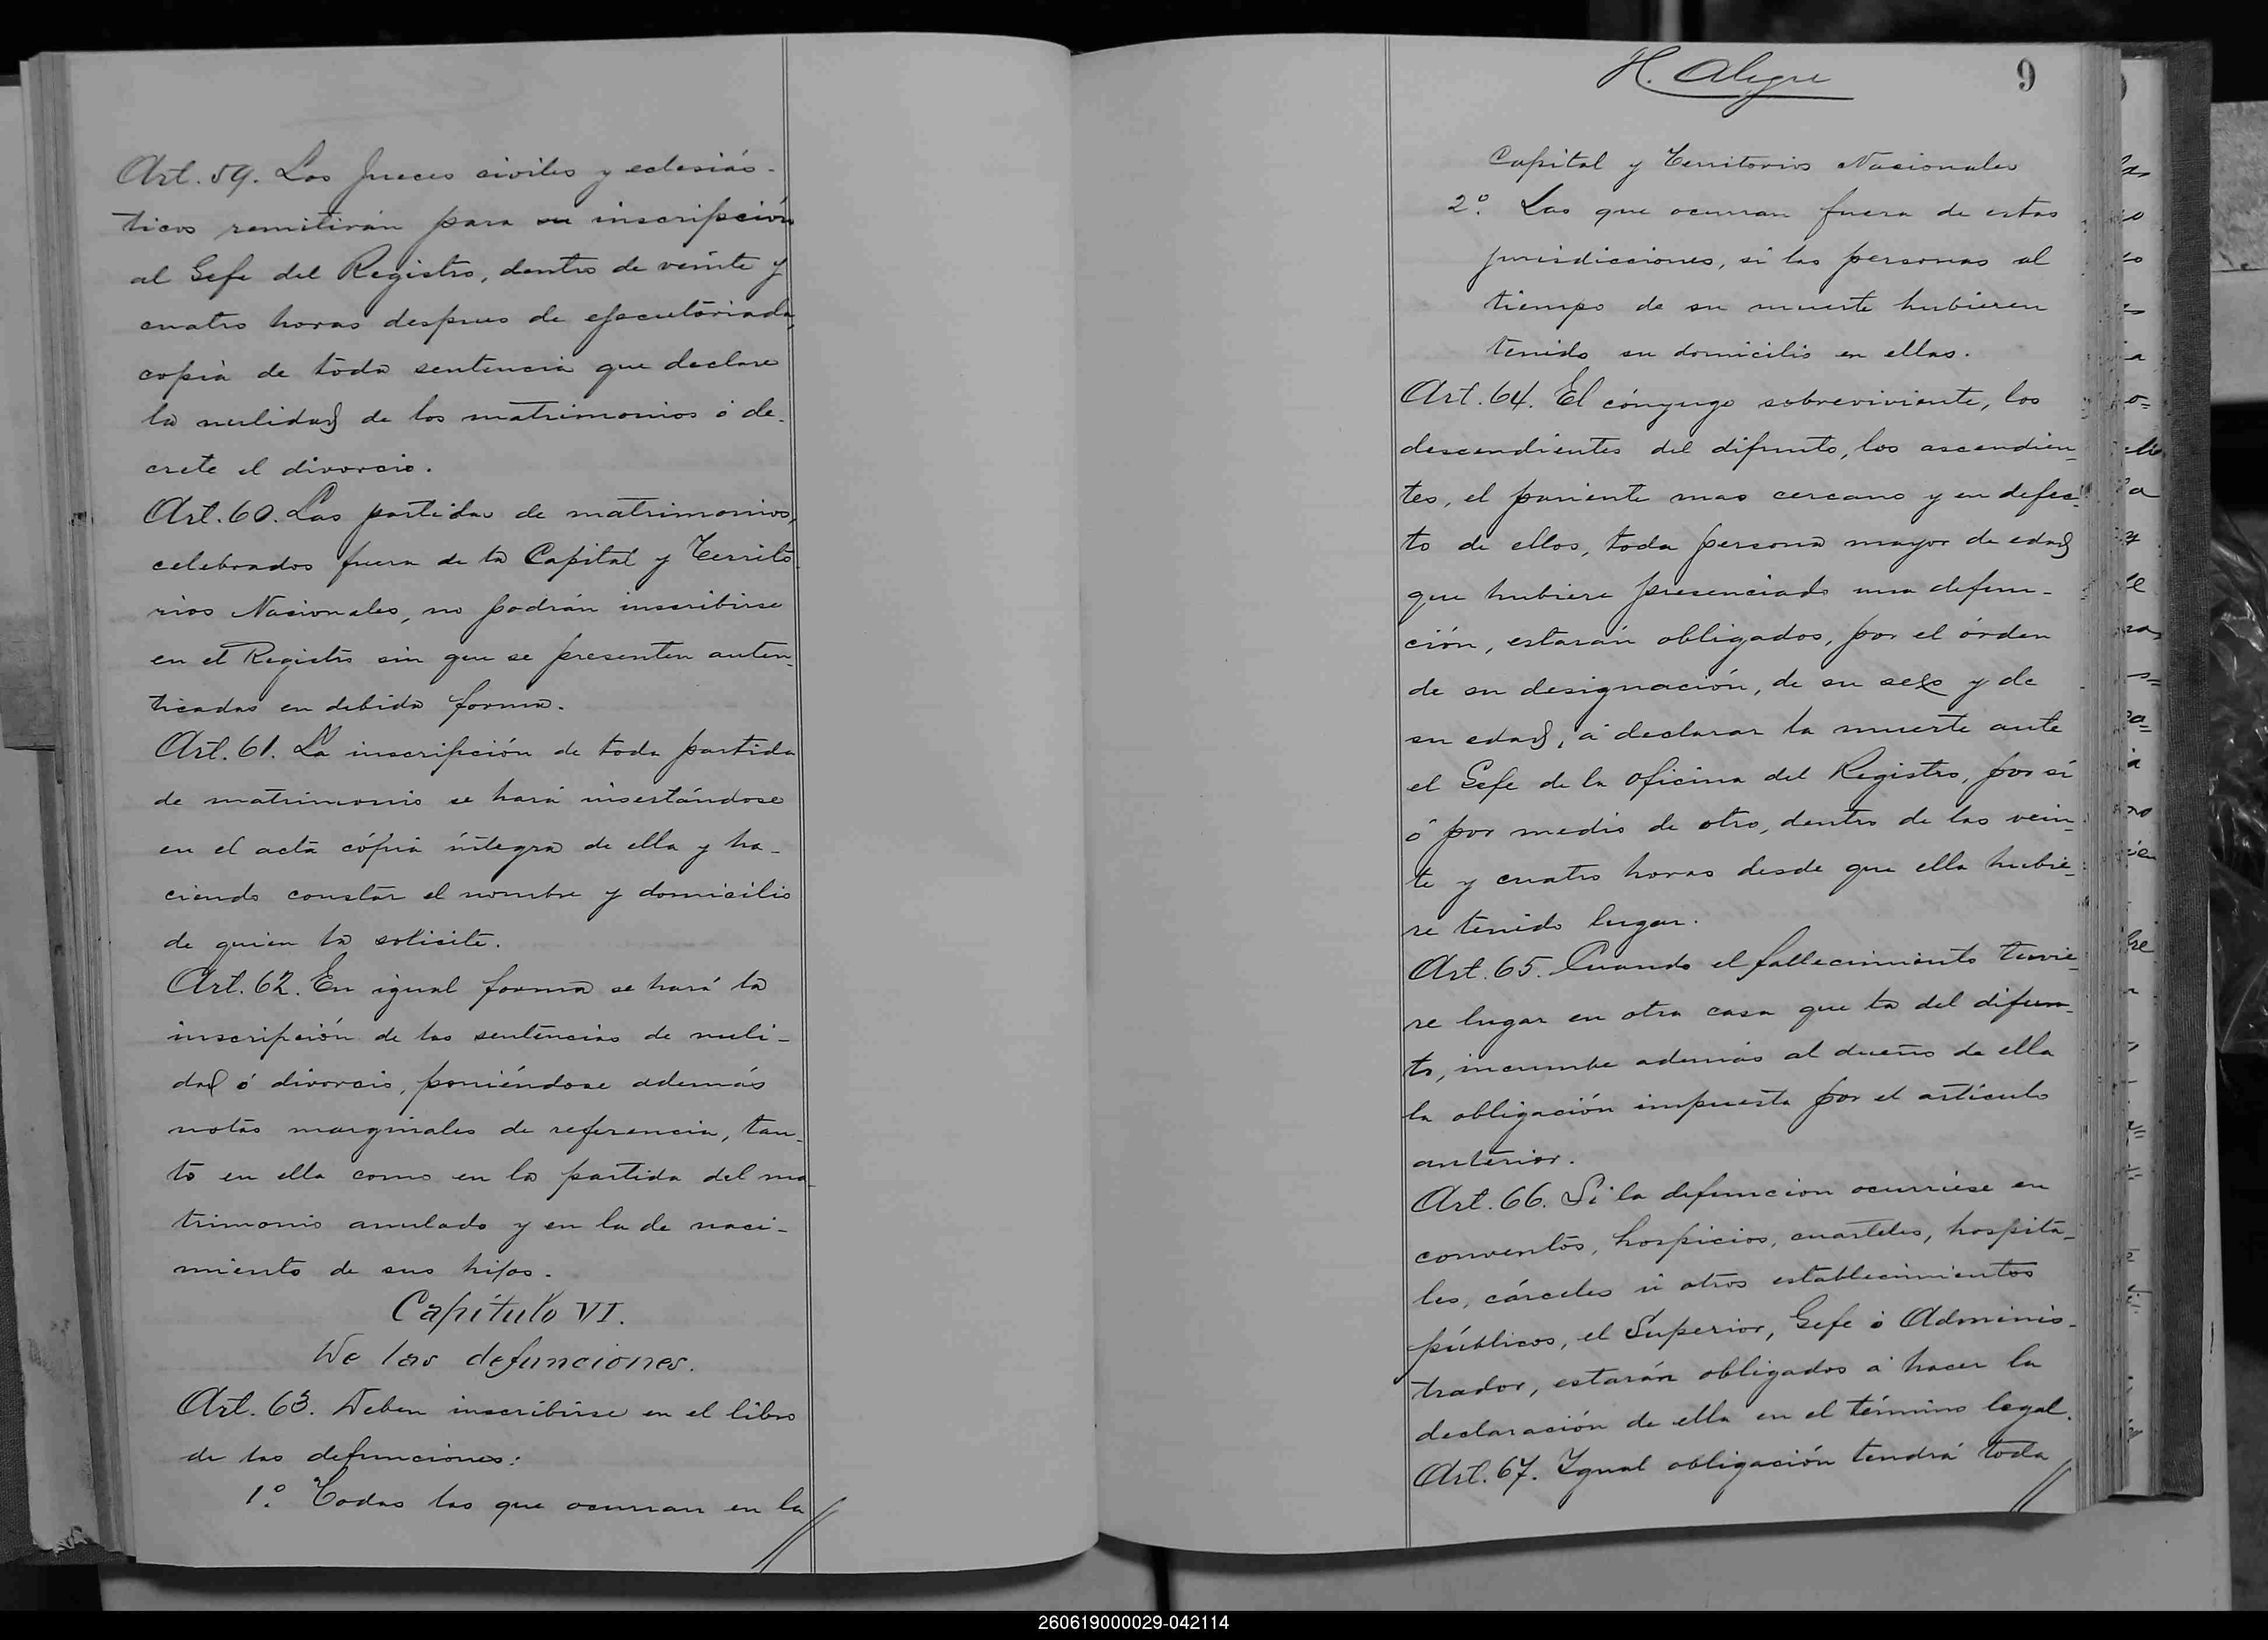 Art. 59. Los Jueces civiles y eclesiás-
ticos remitirán para su inscripción
al Gefe del Registro, dentro de veinte y
cuatro horas despues de ejecutoriada,
copia de toda sentencia que declare
la nulidad de los matrimonios ó de-
crete el divorcio.
Art. 60. Las partidas de matrimonios,
celebrados fuera de la Capital y Territo
rios Nacionales, no podrán inscribirse
en el Registro sin que se presenten auten-
ticadas en debida forma.
Art. 61. La inscripción de toda partida
de matrimonio se hará insertándose
en el acta cópia íntegra de ella y ha-
ciendo constar el nombre y domicilio
de quien la solicite.
Art. 62. En igual forma se hará la
inscripción de las sentencias de nuli-
dad ó divorcio, poniéndose además
notas marginales de referencia, tan-
to en ella como en la partida del ma-
trimonio anulado y en la de naci-
miento de sus hijos.
Capítulo VI.
De las defunciones.
Art. 63. Deben inscribirse en el libro
de las defunciones:
1º. Todas las que ocurran en la
H. Alegre
9
Capital y Territorios Nacionales
2º. Las que ocurran fuera de estas
jurisdicciones, si las personas al
tiempo de su muerte hubieren
tenido su domicilio en ellas.
Art. 64. El cónyuge sobreviviente, los
descendientes del difunto, los ascendien-
tes, el pariente mas cercano y en defec-
to de ellos, toda persona mayor de edad
que hubiere presenciado una defun-
ción, estarán obligados, por el órden
de su designación, de su sexo y de
su edad, á declarar la muerte ante
el Gefe de la oficina del Registro, por sí
ó por medio de otro, dentro de las vein-
te y cuatro horas desde que ella hubie-
re tenido lugar.
Art. 65. Cuando el fallecimiento tuvie-
re lugar en otra casa que la del difun-
to, incumbe además al dueño de ella
la obligación impuesta por el artículo
anterior.
Art. 66. Si la defuncion ocurriese en
conventos, hospicios, cuarteles, hospita-
les, cárceles ú otros establecimientos
públicos, el Superior, Gefe ó Adminis-
trador, estarán obligados á hacer la
declaración de ella en el término legal.
Art. 67. Igual obligación tendrá toda
260619000029-042114